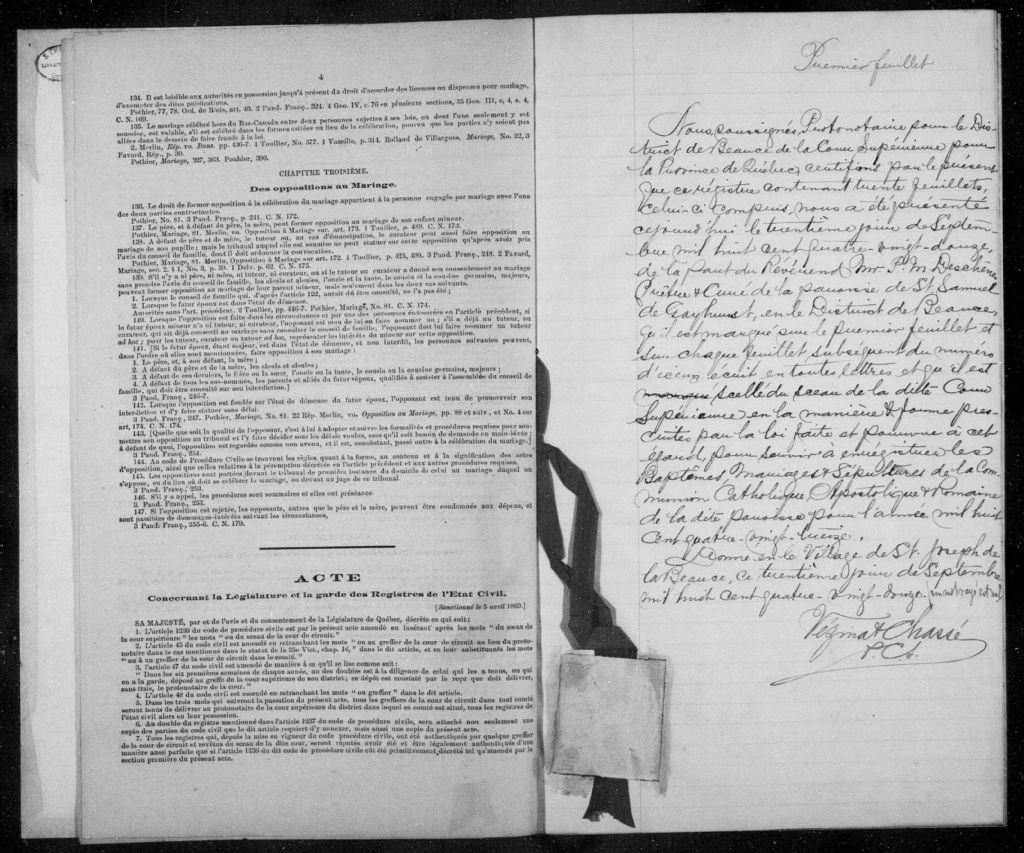 4
134. Il est loisible aux autorités en possession jusqu'à présent du droit d'accorder des licences ou dispenses pour mariage,
d'exempter des dites publications.
Pothier, 77, 78. Ord. de Blois, art. 40. 2 Pand. Franç., 324. 4 Geo. IV, c. 76 en plusieurs sections, 35 Geo. III, c, 4, s. 4,
C. N. 169.
135. Le mariage célébré hors du Bas-Canada entre deux personnes sujettes à ses lois, ou dont l'une seulement y est
soumise, est valable, s'il est célébré dans les formes usitées au lieu de la célébration, pourvu que les parties n'y soient pas
allées dans le dessein de faire fraude à la loi.
2. Merlin, Rép. vo. Bans. pp. 436-7. 1 Toullier, No. 577. 1 Vamelle, p. 314. Rolland de Villargues, Mariage, No. 22, 3
Favard, Rép., p. 30.
Pothier, Mariage, 327, 363. Pouhier, 390.
CHAPITRE TROISIÈME.
Des oppositions au Mariage.
136. Le droit de former opposition à la célébration du mariage appartient à la personne engagée par mariage avec l'une
des deux parties contractantes.
Pothier, No. 81. 3 Pand. Franç., p. 241. C. N. 172.
137. Le père, et à défaut du père, la mère, peut former opposition au mariage de son enfant mineur.
Pothier, Mariage, 81. Merlin, vo. Opposition à Mariage sur. art. 173. 1 Touiller, p. 489. C. N. 173.
138. A défaut de père et de mère, le tuteur ou, au cas d'émancipation, le curateur peut aussi faire opposition au
mariage de son pupille ; mais le tribunal auquel elle est soumise ne peut statuer sur cette opposition qu'après avoir pris
l'avis du conseil de famille, dont il doit ordonner la convocation.
Pothier, Mariage, 81. Merlin, Opposition à Mariage sur art. 172. 1 Toullier, p. 425, 490. 3 Pand. Franç., 248. 2 Favard,
Mariage, sec. 2, § 1, No. 3, p. 59. 1 Delv. p. 62. C. N. 175.
139. S'il n'y a ni père, ni mère, ni tuteur, ni curateur, ou si le tuteur ou curateur a donné son consentement au mariage
sans prendre l'avis du conseil de famille, les aïeuls et aïeules, l'oncle et la tante, le cousin et la cousine germains, majeurs,
peuvent former opposition au mariage de leur parent mineur, mais seulement dans les deux cas suivants.
1. Lorsque le conseil de famille qui, d'après l'article 122, aurait dû être consulté, ne l'a pas été ;
2. Lorsque le futur époux est dans l'état de démence.
Autorités sous l'art. précédent. 2 Toullier, pp. 446-7. Pothier, Mariage, No. 81. C. N. 174.
140. Lorsque l'opposition est faite dans les circonstances et par une des personnes énumérées en l'article précédent, si
le futur époux mineur n'a ni tuteur, ni curateur, l'opposant est tenu de lui en faire nommer un ; s'il a déjà un tuteur, ou
curateur, qui ait déjà consenti au mariage sans consulter le conseil de famille, l'opposant doit lui faire nommer un tuteur
ad hoc ; pour les tuteur, curateur ou tuteur ad hoc, représenter les intérêts du mineur sur cette opposition.
141. [Si le futur époux, étant majeur, est dans l'état de démence, et non interdit, les personnes suivantes peuvent,
dans l'ordre où elles sont mentionnées, faire opposition à son mariage :
1. Le père, et, à son défaut, la mère ;
2. A défaut du père et de la mère, les aïeuls et aïeules ;
3. A défaut de ces derniers, le frère ou la sœur, l'oncle ou la tante, le cousin ou la cousine germains, majeurs ;
4. A défaut de tous les sus-nommés, les parents et alliés du futur époux, qualifiés à assister à l'assemblée du conseil de
famille, qui doit être consulté sur son interdiction.]
3 Pand. Franç., 246-7.
142. Lorsque l'opposition est fondée sur l'état de démence du futur époux, l'opposant est tenu de promouvoir son
interdiction et d'y faire statuer sans délai.
3 Pand. Franç., 247. Pothier, Mariage, No. 81. 22 Rép. Merlin, vo. Opposition au Mariage, pp. 88 et suiv., et No. 4 sur
art, 174. C. N. 174.
143. [Quelle que soit la qualité de l'opposant, c'est à lui à adopter et suivre les formalités et procédures requises pour sou-
mettre son opposition au tribunal et l'y faire décider sous les délais voulus, sans qu'il soit besoin de demande en main-levée ;
à défaut de quoi, l'opposition est regardée comme non avenu, et il est, nonobstant, passé outre à la célébration du mariage.]
3 Pand. Franç., 254.
144. Au code de Procédure Civile se trouvent les règles quant à la forme, au contenu et à la signification des actes
d'opposition, ainsi que celles relatives à la péremption décrétée en l'article précédent et aux autres procédures requises.
145. Les oppositions sont portées devant le tribunal de première instance du domicile de celui au mariage duquel on
s'oppose, ou du lieu où doit se célébrer le mariage, ou devant un juge de ce tribunal.
3 Pand. Franç., 253.
146. S'il y a appel, les procédures sont sommaires et elles ont préséance.
3. Pand. Franç., 253.
147. Si l'opposition est rejetée, les opposants, autres que le père et la mère, peuvent être condamnés aux dépens, et
sont passibles de dommages-intérêts suivant les circonstances,
3 Pand. Franç., 255-6. C. N. 179.
ACTE
Concernant la Législature et la garde des Registres de l'Etat Civil.
[Sanctionné le 5 avril 1869.]
SA MAJESTÉ, par et de l'avis et du consentement de la Législature de Québec, décrète ce qui suit:
1. L'article 1236 du code de procédure civile est par le présent acte amendé en insérant après les mots "du sceau de
la cour supérieure" les mots "ou du sceau de la cour de circuit."
2. L'article 45 du code civil est amendé en retranchant les mots "ou au greffier de la cour de circuit au lieu du proto-
notaire dans le cas mentionné dans le statut de la 25e Vict., chap. 16," dans le dit article, et en leur substituants les mots
"ou à un greffier de la cour de circuit dans le comté."
3. l'article 47 du code civil est amendé de manière à ce qu'il se lise comme suit :
"Dans les six premières semaines de chaque année, un des doubles est à la diligence de celui qui les a tenus, ou qui
en a la garde, déposé au greffe de la cour supérieure de son district ; ce dépôt est constaté par le reçu que doit délivrer,
sans frais, le protonotaire de la cour."
4. L'article 48 du code civil est amendé en retranchant les mots "ou greffier" dans le dit article.
5. Dans les trois mois qui suivront la passation du présent acte, tous les greffiers de la cour de circuit dans tout comté
seront tenus de délivrer au protonotaire de la cour supérieure du district dans lequel ce comté est situé, tous les registres de
l'état civil alors en leur possession.
6. Au double du registre mentionné dans l'article 1237 du code de procédure civile, sera attaché non seulement une
copie des parties du code civil que le dit article requiert d'y annexer, mais aussi une copie du présent acte.
7. Tous les registres qui, depuis la mise en vigueur du code procédure civile, ont été authentiqués par quelque greffier
de la cour de circuit et revêtus du sceau de la dite cour, seront réputés avoir été et être régulement authentiqués d'une
manière aussi parfaite que si l'article 1236 du dit code de procédure civile eût été primitivement décrété tel qu'amendé par le
section première du présent acte.
Premier feuillet
Nous, soussignés, Protonotaire pour le Dis-
trict de Beauce de la Cour Supérieure pour
la Province de Québec, certifions par le présent
que ce registre contenant trente feuillets,
celui-ci compris, nous a été présenté
cejourd'hui le trentième jour de Septem-
bre mil huit cent quatre-vingt-douze,
de la part du Révérend Mr. P. M. Deschênes
Prêtre & Curé de la paroisse de St. Samuel
de Gayhurst, en le District de Beauce,
qu'il est marqué sur le premier feuillet et
sur chaque feuillet subséquent du numéro
d'icelui écrit en toutes lettres et qu'il est
scellé du sceau de la dite Cour
Supérieure en la manière & forme pres-
crites par la loi faite et pourvue à cet
égard, pour servir à enregistrer les
Baptêmes, Mariages & Sépultures de la Com-
munion Catholique, Apostolique & Romaine
de la dite paroisse pour l'année mil huit
cent quatre-vingt-treize.
Donné en le Village de St. Joseph de
la Beauce, ce trentième jour de Septembre
mil huit cent quatre-vingt-douze. un mot rayé est nul
Vézina & Chassé
P. C. S.